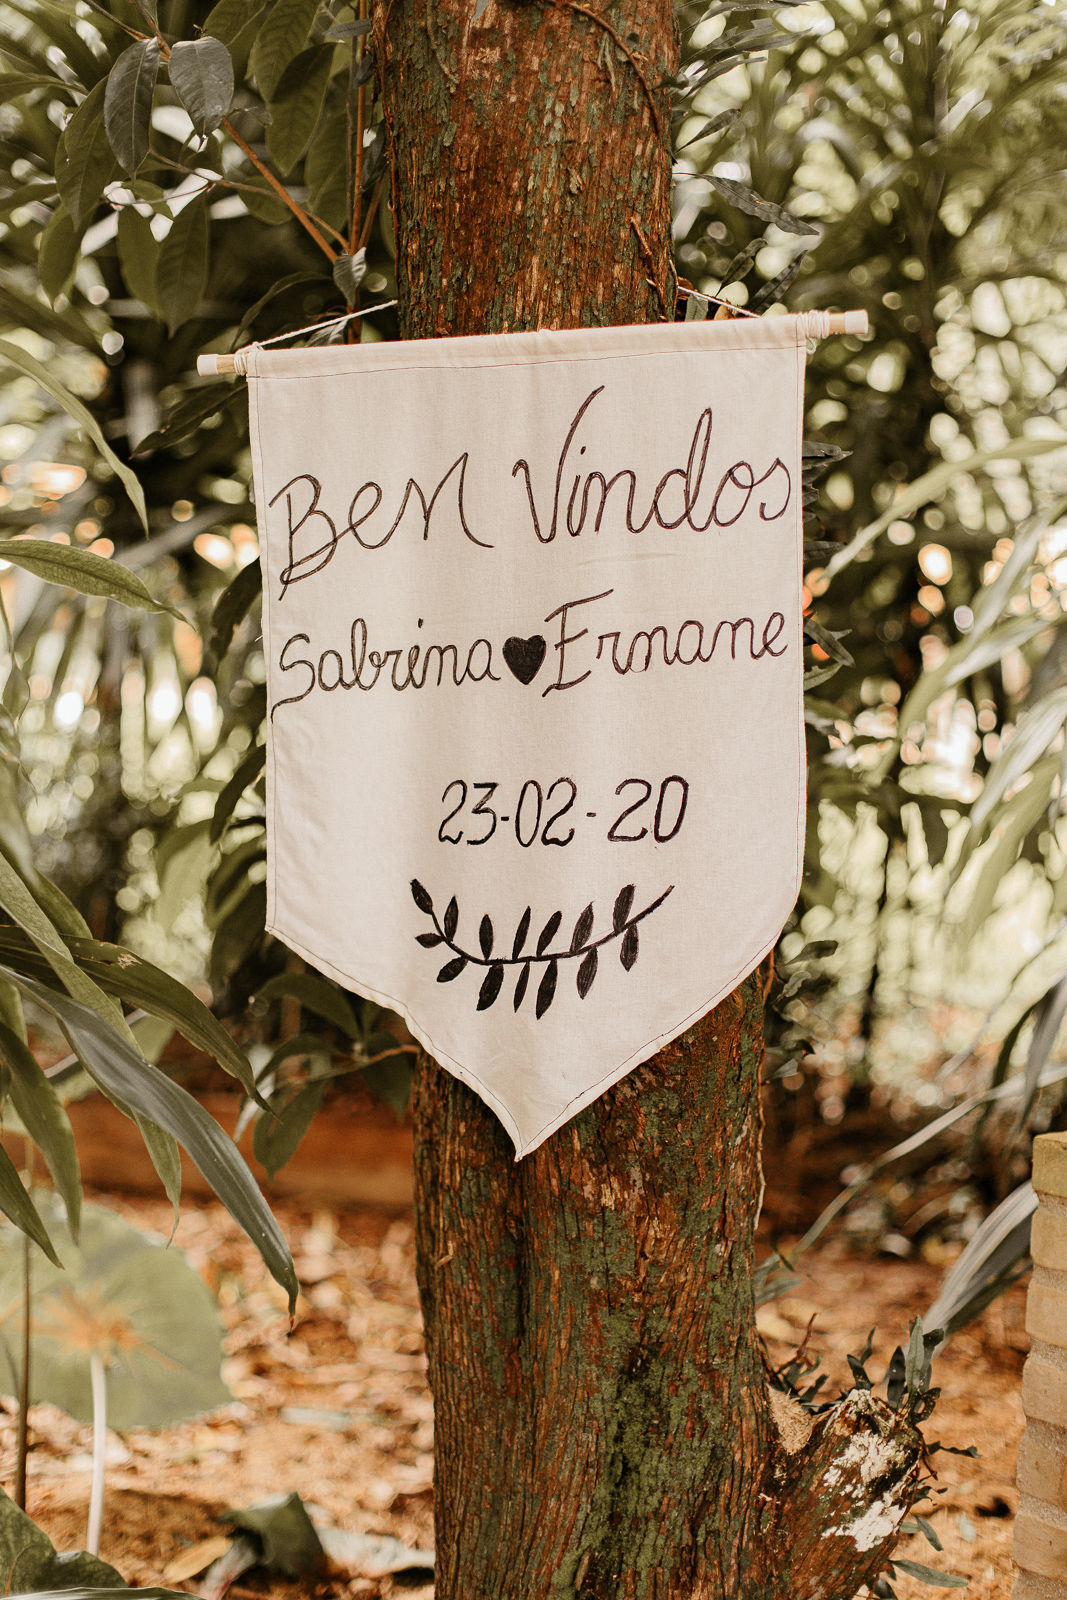 Ben Vindos
Sabrina♥Ernane
23-02-20